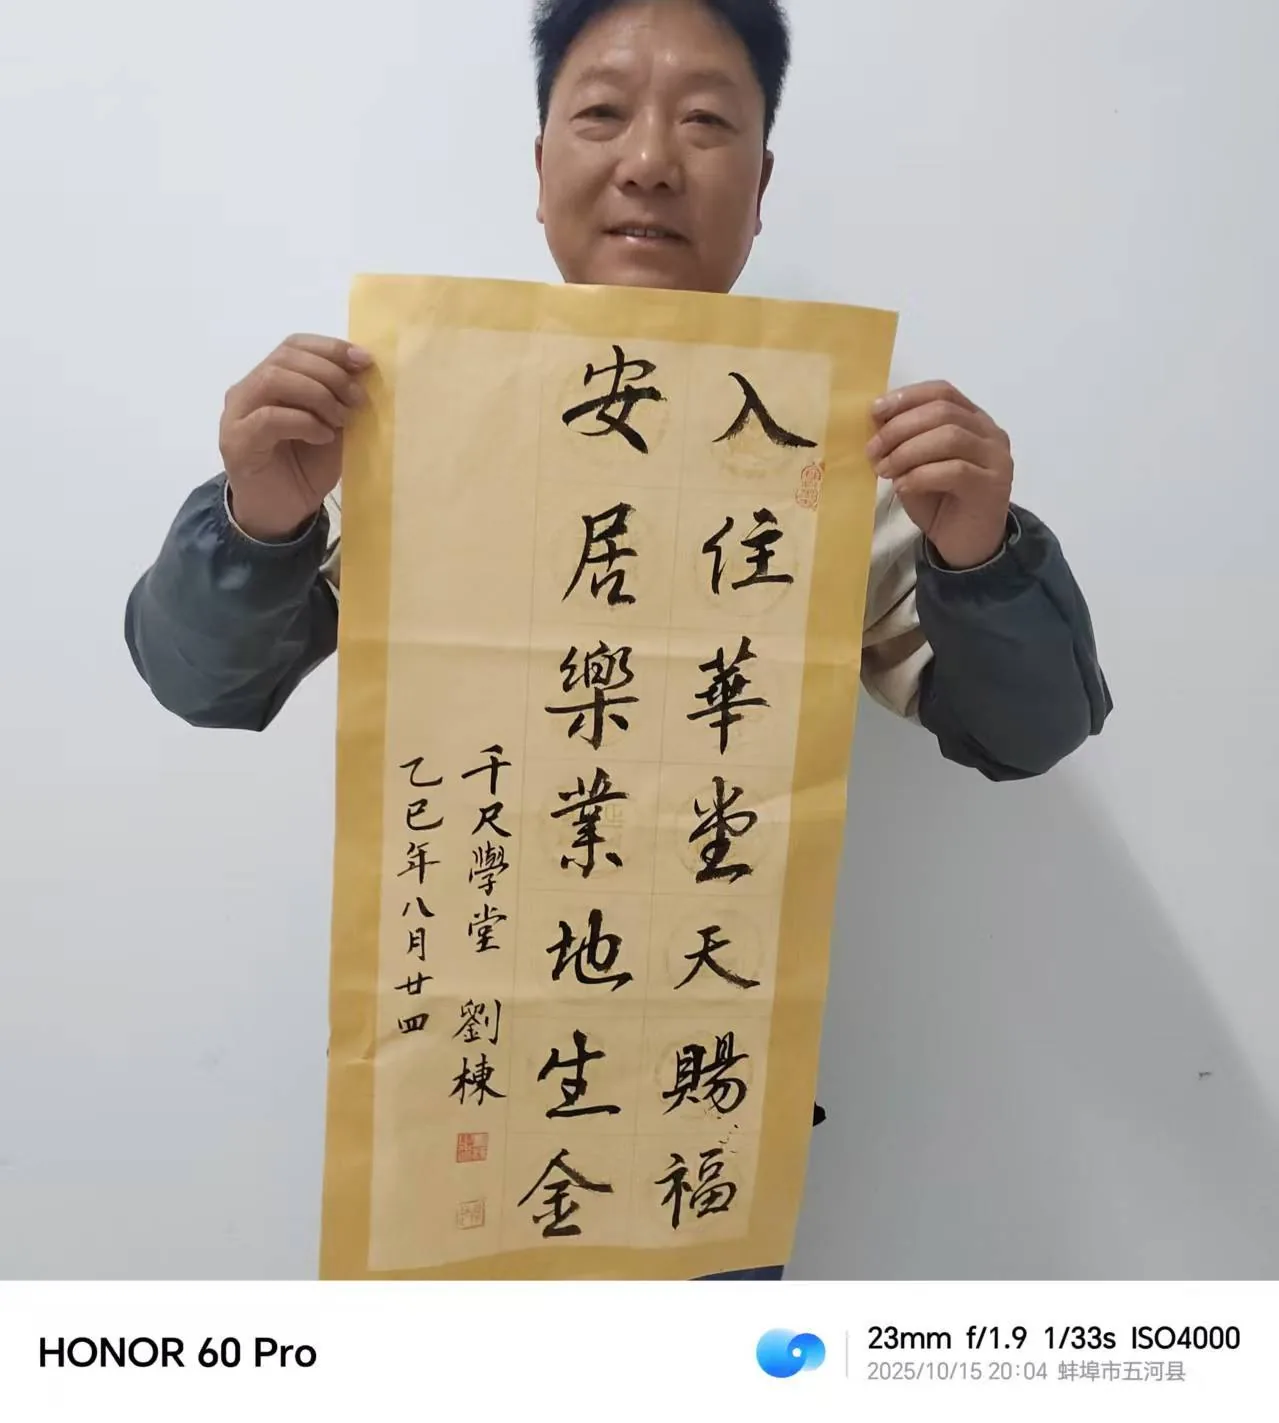 入住華堂天賜福
安居樂業地生金
千尺學堂 劉棟
乙巳年八月廿四
HONOR 60 Pro
23mm f/1.9 1/33s ISO4000
2025/10/15 20:04 蚌埠市五河县